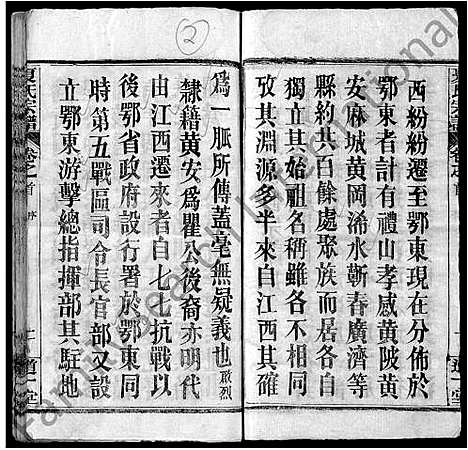 西紛紛遷至鄂東現在分佈於
鄂東者計有禮山孝感黃陂黃
安麻城黃岡浠水蘄春廣濟等
縣約共百餘處聚族而居各自
獨立其始祖名稱雖各不同而
攷其淵源多半來自江西其確
②
爲一脈所傳蓋毫無疑義也 啟烈
隸籍黃安爲瞿公後裔亦明代
由江西遷來者自七七抗戰以
後鄂省政府設行署於鄂東同
時第五戰區司令長官部又設
立鄂東游擊總指揮部其駐地
夏氏宗譜
卷之首
序
道一堂